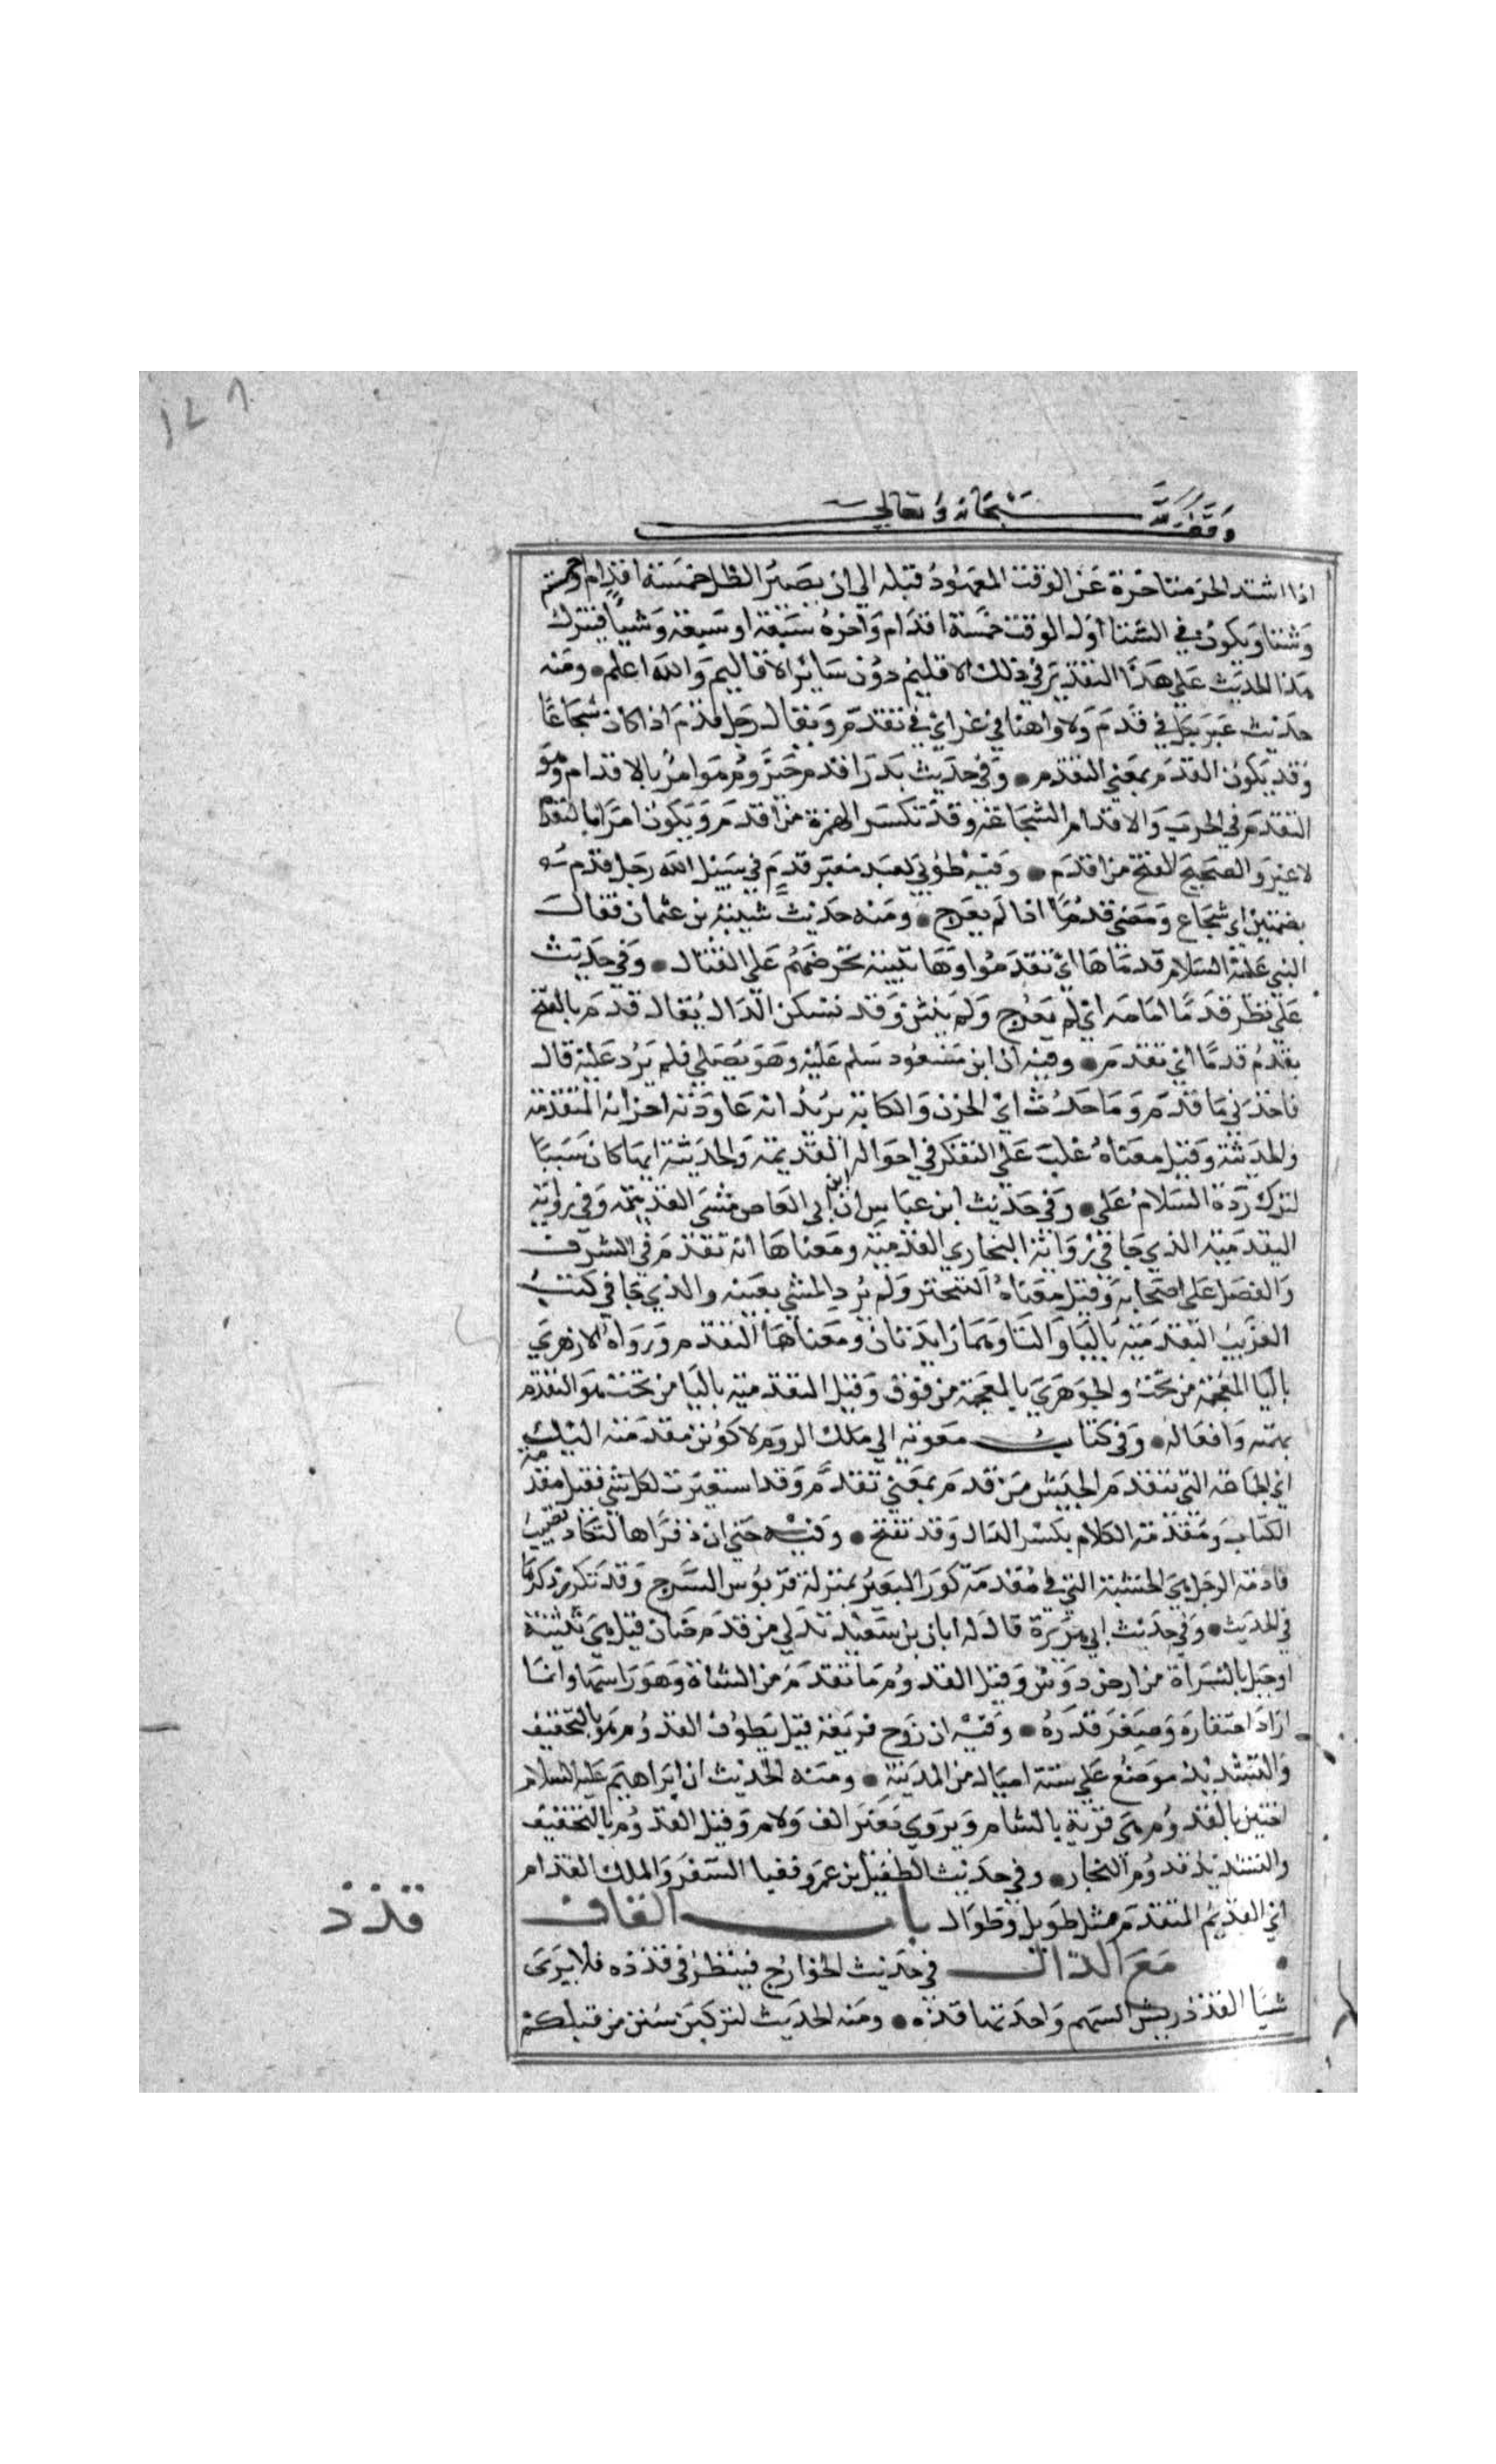 ١٤٨
وقف لله سبحانه وتعالى
اذا اشتد الحر متاخرة عن الوقت المعهود قبله الي ان يصير الظل خمسة اقدام وخمسة
وشيا ويكون في الشتا اول الوقت خمسة اقدام واخره سبعة او سبعة وشيا فينزل
هذا الحديث علي هذا التقدير في ذلك الاقليم دون ساير الاقاليم والله اعلم ومنه
حديث غير نكل في قدم ولا واهنا في عزم اي في تقدم ويقال رجل قدم اذا كان شجاعا
وقد يكون القدم بمعني التقدم وفي حديث بدر اقدم حيزوم هو امر بالاقدام وهو
التقدم في الحرب والاقدام الشجاعة وقد تكسر الهمزة من اقدم ويكون امرا بالتقدم
لا غير والصحيح الفتح من اقدم وفيه طوبي لعبد مغبر قدم في سبيل الله رجل قدم
بضمتين اي شجاع ومضي قدما اذا لم يعرج ومنه حديث شيبة بن عثمان فقال
النبي عليه السلام قدما ها اي تقدموا وها تنبيه يحرضهم علي القتال وفي حديث
علي نظر قدما امامه اي لم يعرج ولم ينثن وقد تسكن الدال يقال قدم بالفتح
يقدم قدما اي تقدم وفيه ان ابن مسعود سلم عليه وهو يصلي فلم يرد عليه قال
فاخذني ما قدم وما حدث اي الحزن والكابة يريد انه عاودته احزانه المتقدمة
والحديثة وقيل معناه غلب علي التفكر في احوالي القديمة والحديثة ايها كان سببا
لترك رده السلام علي وفي حديث ابن عباس ان ابن ابي العاص مشي القدمية وفي رواية
اليقدمية الذي جا في رواية البخاري القدمية ومعناها انه تقدم في الشرف
والفضل علي اصحابه وقيل معناه التبختر ولم يرد المشي بعينه والذي جا في كتب
الغريب اليقدمية باليا والتا وهما زايدتان ومعناها التقدم ورواه الازهري
باليا المعجمة من تحت والجوهري بالمعجمة من فوق وقيل اليقدمية باليا من تحت هو التقدم
بهمته وافعاله وفي كتاب معوية الي ملك الروم لاكونن مقدمته اليك
اي الجماعة التي تتقدم الجيش من قدم بمعني تقدم وقد استعيرت لكل شي فقيل مقدمة
الكتاب ومقدمة الكلام بكسر الدال وقد تفتح وفيه حتي ان ذفراها لتكاد تصيب
قادمة الرحل هي الخشبة التي في مقدمة كور البعير بمنزلة قربوس السرج وقد تكرر ذكرها
في الحديث وفي حديث ابي هريرة قال له ابان بن سعيد تدلي من قدوم ضان قيل هي ثنية
او جبل بالسراة من ارض دوس وقيل القدوم ما تقدم من الشاة وهو راسها وانما
اراد احتقاره وصغر قدره وفيه ان زوج فريعة قتل بطرف القدوم هو بالتخفيف
والتشديد موضع علي ستة اميال من المدينة ومنه الحديث ان ابراهيم عليه السلام
اختتن بالقدوم هي قرية بالشام ويروي بغير الف ولام وقيل القدوم بالتخفيف
والتشديد قدوم النجار وفي حديث الطفيل بن عمرو ففينا الشعر والملك القدام
اي القديم المتقدم مثل طويل وطوال باب القاف
مع الذال في حديث الخوارج فينظر في قذذه فلا يري
شيا القذذ ريش السهم واحدتها قذة ومنه الحديث لتركبن سنن من قبلكم
قذذ